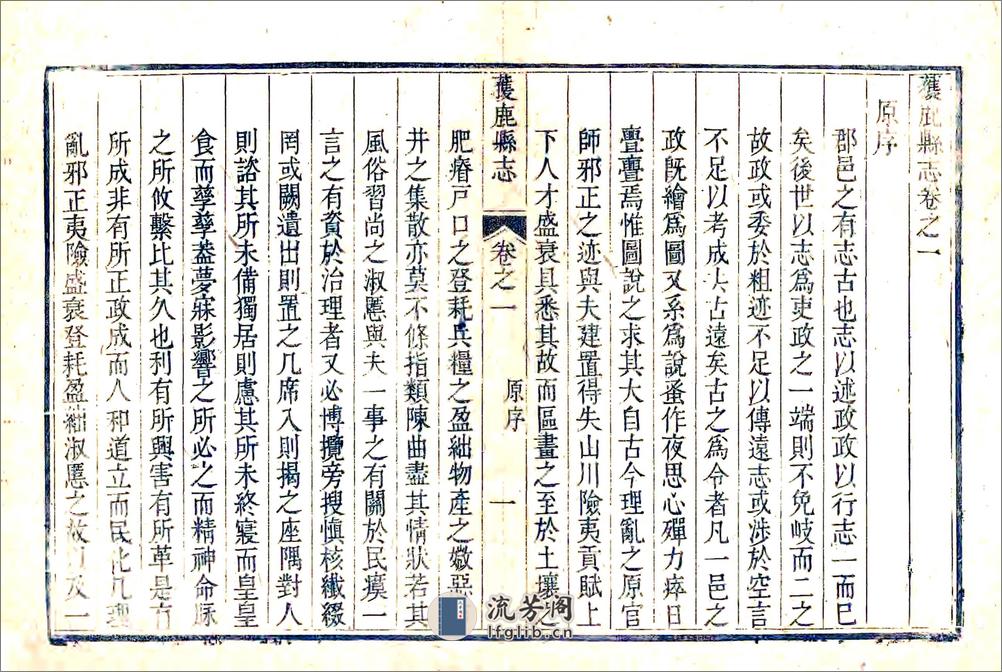 獲鹿縣志卷之一
原序
郡邑之有志古也志以述政政以行志一而已
矣後世以志爲吏政之一端則不免岐而二之
故政或委於粗迹不足以傳遠志或涉於空言
不足以考成去古遠矣古之爲令者凡一邑之
政旣繪爲圖又系爲說蚤作夜思心殫力瘁日
亹亹焉惟圖說之求其大自古今理亂之原官
師邪正之迹與夫建置得失山川險夷貢賦上
下人才盛衰具悉其故而區畫之至於土壤之
獲鹿縣志
卷之一
原序
一
肥瘠戸口之登耗兵糧之盈絀物產之媺惡
井之集散亦莫不條指類陳曲盡其情狀若其
風俗習尚之淑慝與夫一事之有關於民瘼一
言之有資於治理者又必博攬旁搜慎核纎綴
罔或闕遺出則置之几席入則揭之座隅對人
則諮其所未備獨居則慮其所未終寢而皇皇
食而孳孳葢夢寐影響之所必之而精神命脉
之所攸繫比其久也利有所興害有所革是有
所成非有所正政成而人和道立而民化凡理
亂邪正夷險盛衰登耗盈絀淑慝之故
流芳阁
lfglib.cn